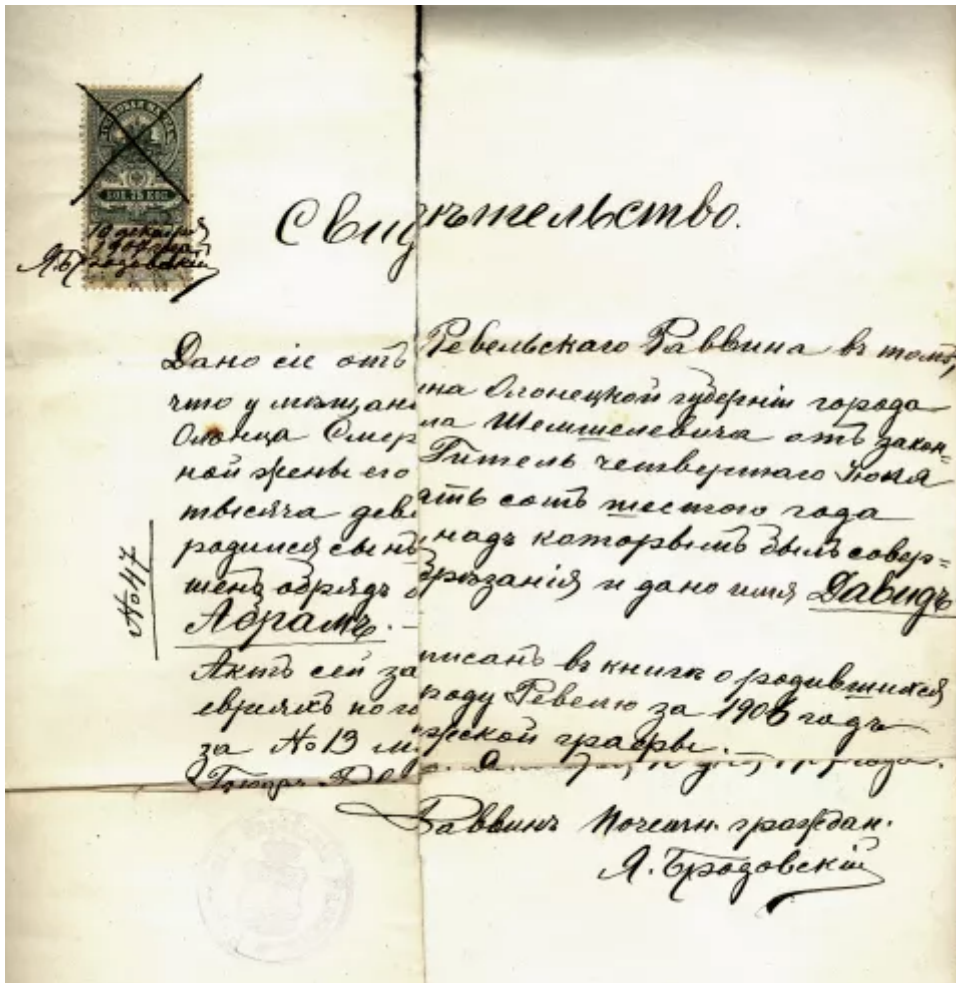 КОП. 75 КОП.
19 декабря
Я. Бродовскій
Свидѣтельство.
Дано сіе отъ Ревельскаго Раввина въ томъ,
что у мѣщанина Олонецкой губерніи города
Олонца Смерла Шемшелевича отъ закон=
ной жены его Гитель четвертаго Іюня
тысяча девять сотъ шестого года
родился сынъ, надъ которымъ былъ совер=
шенъ обрядъ обрѣзанія и дано имя Давидъ
Абрамъ. —
Актъ сей записанъ въ книгѣ о родившихся
евреяхъ по городу Ревелю за 1906 годъ
за №13 мужской графы.
года.
Раввинъ Почетн. граждан.
Я. Бродовскій
№47